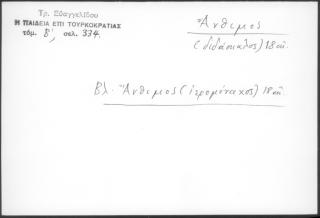 Τρ. Εὐαγγελίδου
Η ΠΑΙΔΕΙΑ ΕΠΙ ΤΟΥΡΚΟΚΡΑΤΙΑΣ
τόμ. Β', σελ. 334.
Ἄνθιμος
(διδάσκαλος) 18 αἰ.
Βλ. Ἄνθιμος (ἱερομόναχος) 18 αἰ.